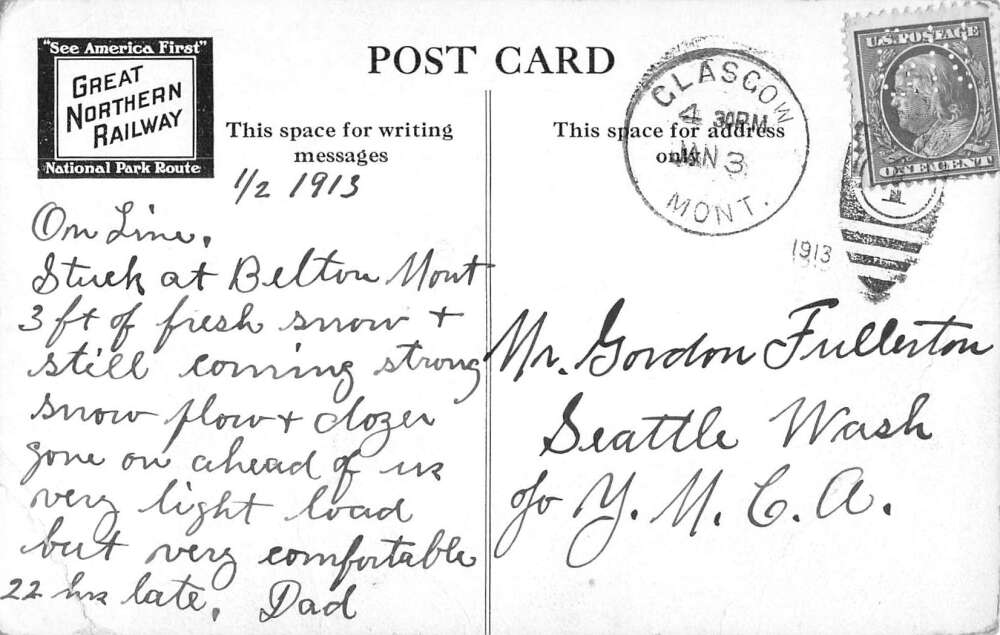 "See America First"
GREAT
NORTHERN
RAILWAY
National Park Route
POST CARD
This space for writing
messages
This space for address
only
GLASGOW
4 30 P.M.
JAN 3
MONT.
1913
U.S. POSTAGE
ONE CENT
1
1/2 1913
On Line.
Stuck at Belton Mont
3 ft of fresh snow +
still coming strong
snow plow + dozer
gone on ahead of us
very light load
but very comfortable
22 hrs late. Dad
Mr. Gordon Fullerton
Seattle Wash
c/o Y. M. C. A.